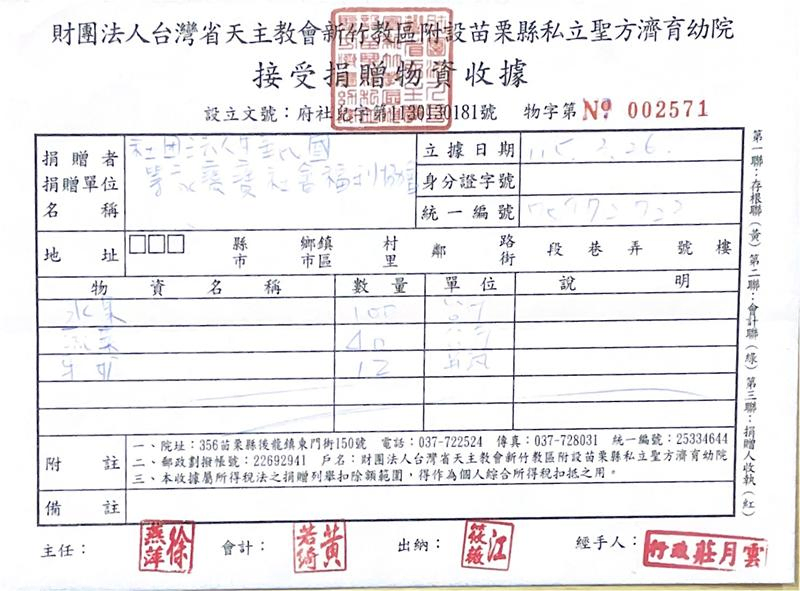 財團法人台灣省天主教會新竹教區附設苗栗縣私立聖方濟育幼院
接受捐贈物資收據
設立文號：府社兒字第1130130181號 物字第 № 002571
捐贈者
捐贈單位
名稱
社団法人中華民國
社會福利協會
立據日期 115. 2. 26.
身分證字號
統一編號
地址 縣市 鄉鎮市區 村里 鄰 路街 段 巷 弄 號 樓
物資名稱 數量 單位 說明
水果 100 公斤
蔬菜 40 公斤
牛奶 12
附註
一、院址：356苗栗縣後龍鎮東門街150號 電話：037-722524 傳真：037-728031 統一編號：25334644
二、郵政劃撥帳號：22692941 戶名：財團法人台灣省天主教會新竹教區附設苗栗縣私立聖方濟育幼院
三、本收據屬所得稅法之捐贈列舉扣除額範圍，得作為個人綜合所得稅扣抵之用。
備註
主任： 徐燕萍 會計： 黃若綺 出納： 江筱薇 經手人： 行政莊月雲
第一聯：存根聯（黃）第二聯：會計聯（綠）第三聯：捐贈人收執（紅）